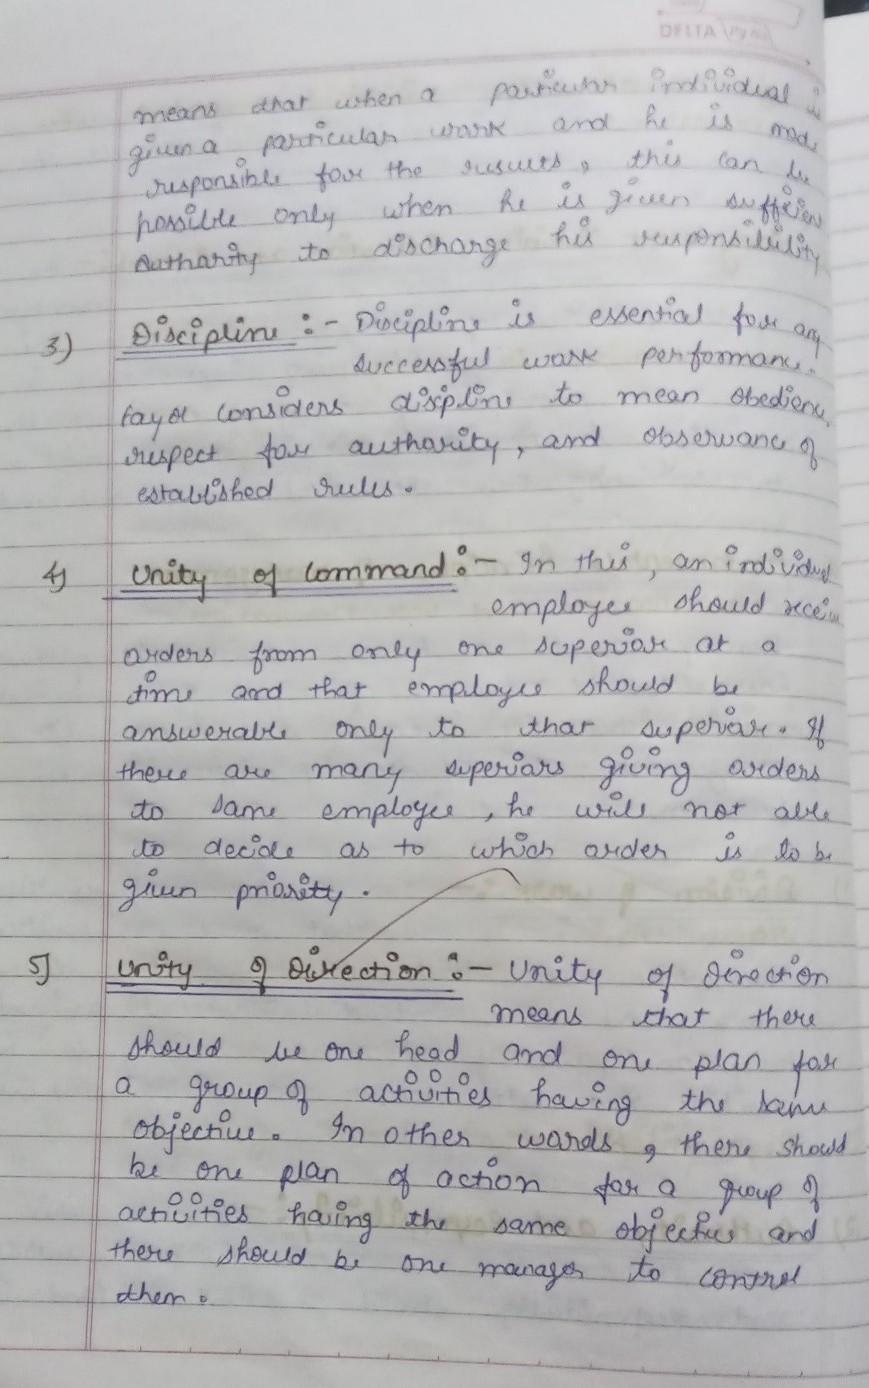 DELTA
means that when a particular individual is
given a particular work and he is made
responsible for the results, this can be
possible only when he is given sufficien
Authority to discharge his responsibility
3) Discipline :- Discipline is essential for any
successful work performanc.
Fayol considers displine to mean obedienc,
respect for authority, and observanc of
established rules.
4) Unity of Command :- In this, an individual
employee should receiv
orders from only one superior at a
time and that employee should be
answerable only to that superior. If
there are many superiors giving orders
to same employee, he will not able
to decide as to which order is to be
given priority.
5) Unity of Direction :- Unity of direction
means that there
should be one head and one plan for
a group of activities having the same
objective. In other words, there should
be one plan of action for a group of
activities having the same objective and
there should be one manager to control
them.